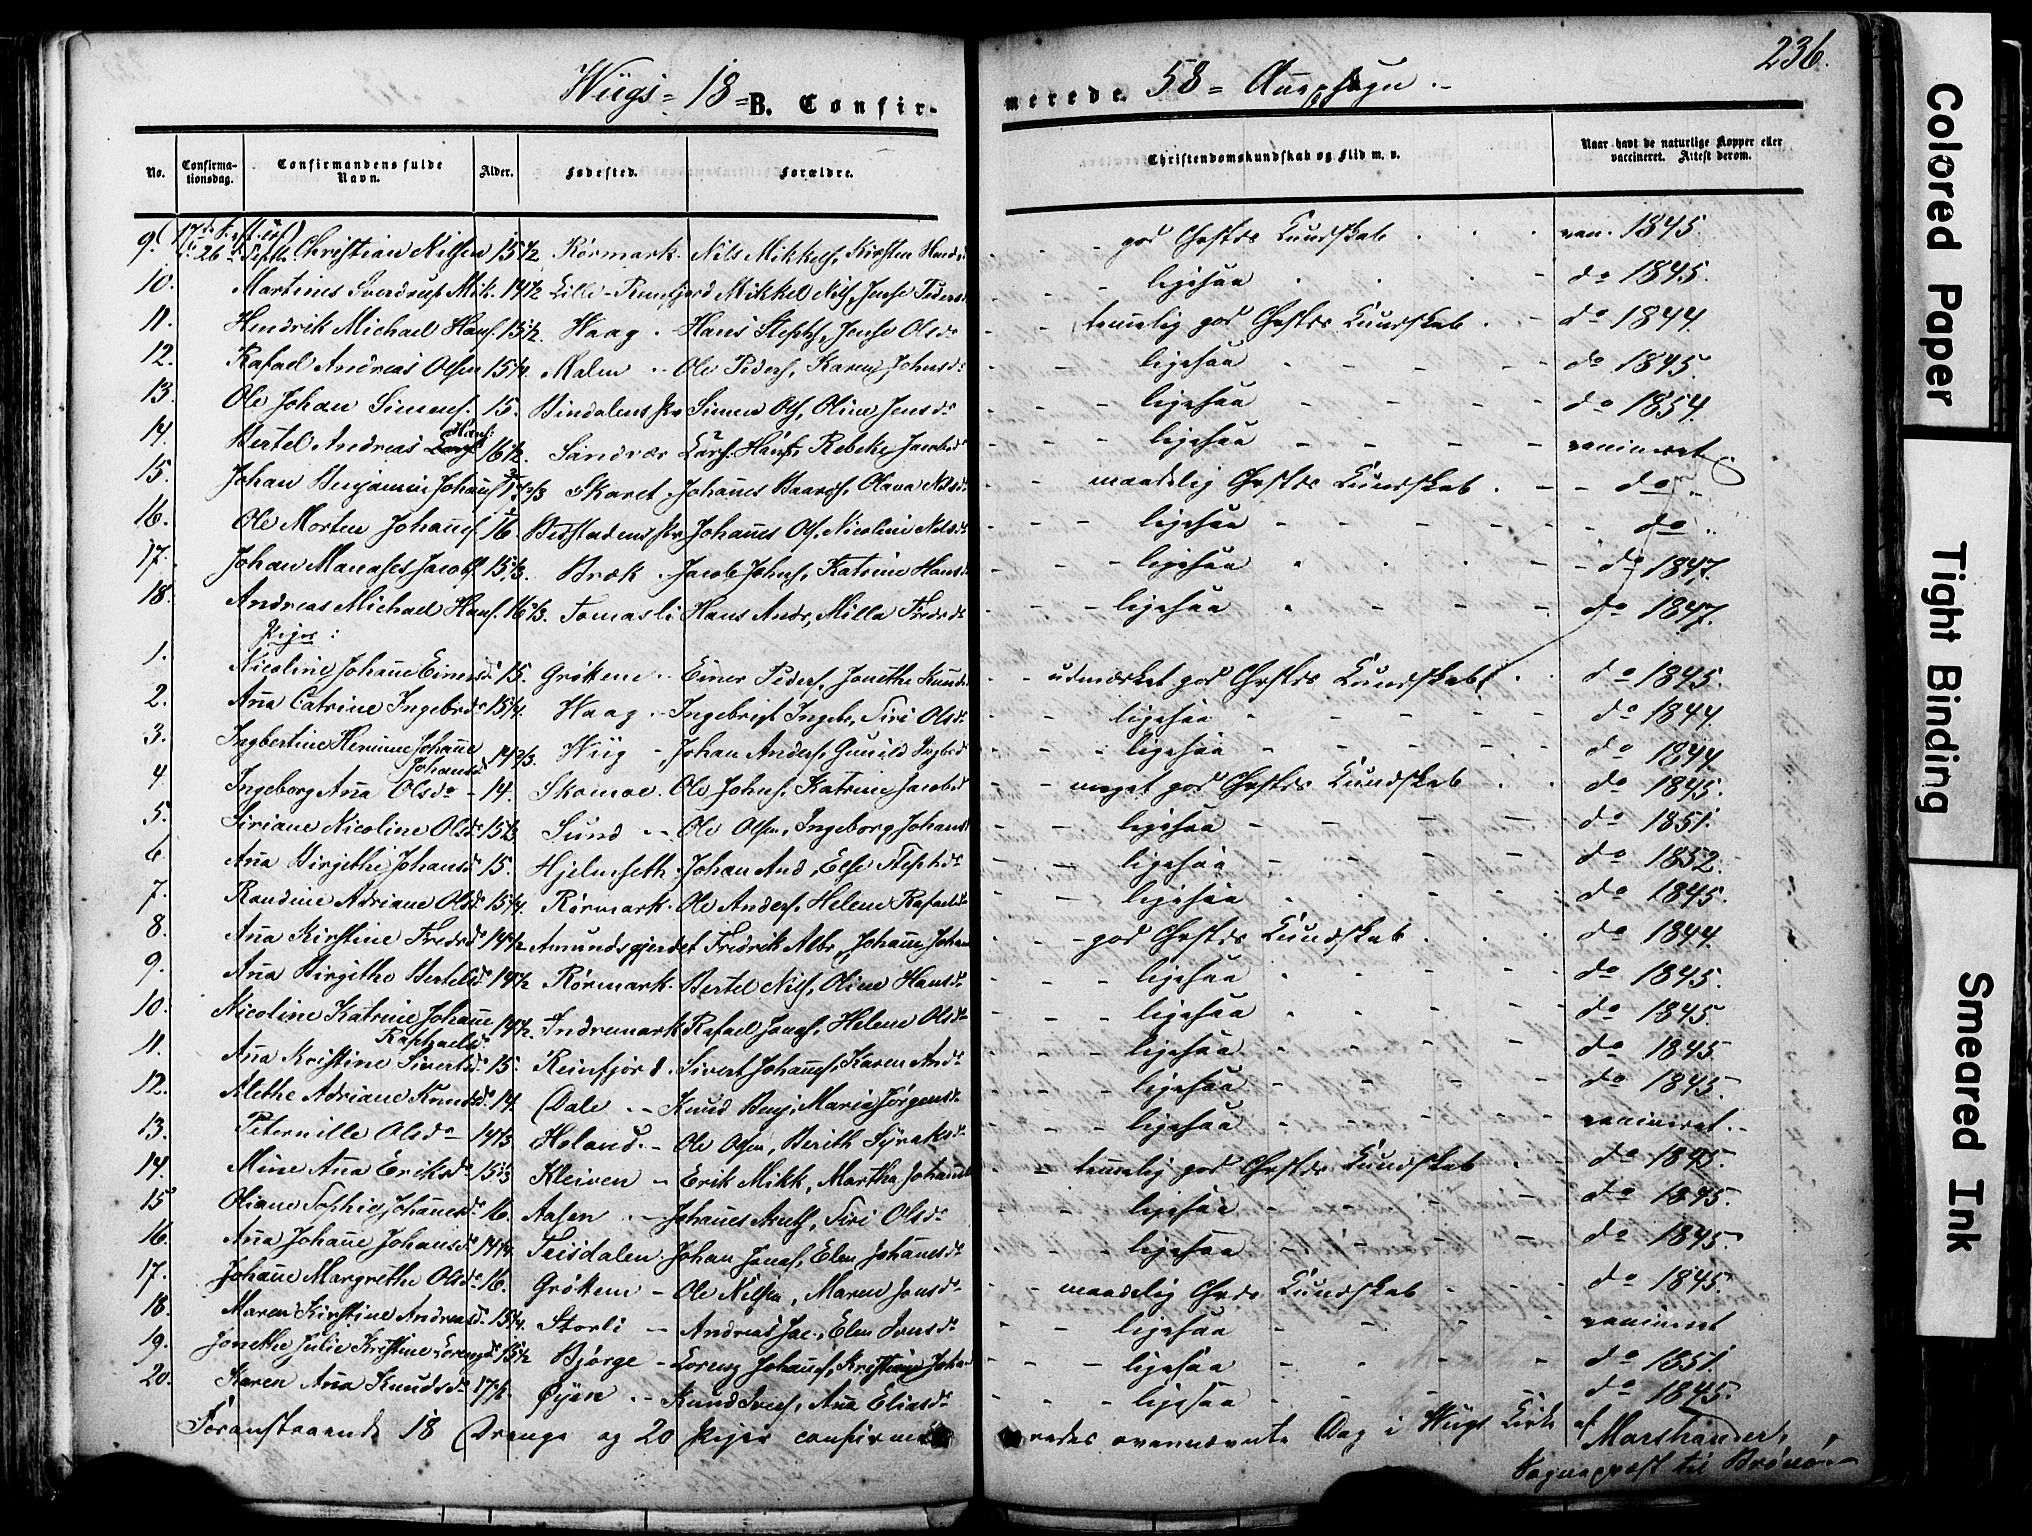 236.
Wiigs = 18 = B. Confir-
merede. 58 =
No.
Confirma-
tionsdag.
Confirmandens fulde
Navn.
Alder.
Fødested.
Forældre.
Christendomskundskab og Flid m. v.
Naar havt de naturlige Kopper eller
vaccineret. Attest derom.
9. Christian Nilsen 15½ Rørmark. Nils Mikkels, Kirsten god Chrstds Kundskab 1845.
10. Martinus Sverdrup Mik. 14½ Lille- Mikkel Nils, ligesaa do 1845.
11. Hendrik Michael Hans. 15½. Waag. Hans Jonse Olsd. temelig god Chrstds Kundskab. do 1844.
12. Rafael Andreas Olsen 15¼. Malm Ole Peders, Karen Johnsd. ligesaa do 1845.
13. Ole Johan Simons. 15. Bindalens Simon Ols, Oline Jensd. ligesaa do 1854.
14. Bertel Andreas Hans: 16½. Sandvær Lars. Hans, Rebeke Jacobsd. ligesaa vaccineret
15. Johan Benjamin Johans Skaret Johanes Olava Nilsd. maadelig Chrstds Kundskab. do
16. Ole Morten Johans. 16 Johanes Ols, Nicoline Nilsd. ligesaa do
17. Johan Manases Jacobs 15⅓. Bræk. Jacob Johns, Katrine Hansd. ligesaa do 1847.
18. Andreas Michael Hans. 16⅓. Tomasli Hans Andr, Milla Fredrd. ligesaa do 1847.
Piger:
1. Nicoline Johane Einersd. 15. Grøttem Einer Peders, Jonethe Knudsd. udmærket god Chrstds Kundskab. do 1845.
2. Ana Catrine Ingebrd. 15¼. Waag Ingebrigt Ingeb, Siri Olsd. ligesaa do 1844.
3. Ingbertine Johane
Johansd. 14⅔. Wiig Johan Anders, Gunild Ingbd. ligesaa do 1844.
4. Ingeborg Ana Olsd. 14. Skomoe. Ole Johns, Katrine Jacobsd. meget god Chrstds Kundskab do 1845.
5. Siriane Nicoline Olsd. 15⅓ Sund Ole Olsen, Ingeborg Johansd. ligesaa do 1851.
6. Ana Birgithe Johansd. 15. Hjelmseth Johan And, Else Stephd. ligesaa do 1852.
7. Randine Adriane Olsd. 15¼. Rørmark. Ole Anders, Helene Rafaelsd. ligesaa do 1845.
8. Ana Kirstine Fredrd. 14½ Amundsgjerdet Fredrik Albr, Johane Johan god Chrstds Kundskab do 1844.
9. Ana Birgithe Bertelsd. 14½ Rørmark. Bertel Nils, Oline Hansd. ligesaa do 1845.
10. Nicoline Katrine Johane
Raphaelsd. 14½. Indremark Rafael Jonas, Helene Olsd. ligesaa do 1845.
11. Ana Kristine Sivertsd. 15. Reinfjord. Sivert Johans, Karen Andd. ligesaa do 1845.
12. Methe Adriane Knudsd. 14. Dale Knud Benj, Maria Jørgensd. ligesaa do 1845.
13. Peternille Olsd. 14⅔ Heland. Ole Olsen, Berith Syraksd. ligesaa vaccineret.
14. Mine Ana Eriksd. 15⅓ Kleiven Erik Mikk, Martha Johansd. temelig god Chrstds Kundskab do 1845.
15 Oliane Sophie Johanesd. 16. Aasen Johanes Siri Olsd. ligesaa do 1845.
16. Ana Johane Johansd. 14¼. Teisdalen Johan Jonas, Elen Johanesd. ligesaa do 1845.
17. Johane Margrethe Olsd. 16. Grøttem Ole Nilsen, Maren Jonsd. maadelig Chrds Kundskab do 1845.
18. Maren Kirstine Andreasd. 15¼. Storli Andreas Jac, Elen Iversd. ligesaa vaccineret
19. Jonethe Julie Kristine Lorenzd. 15½ Bjørge Lorenz Johans, Kristiane Johan ligesaa do 1851.
20. Karen Ana Knudsd. 17½. Øyen Knud Ivers, Ana Eliasd. ligesaa do 1845.
Foranstaaende 18 Drenge og 20 Piger confirme-
redes ovennævnte Dag i Wiigs Kirke af
Sognepræst til Brønø.
Colored Paper
Tight Binding
Smeared Ink